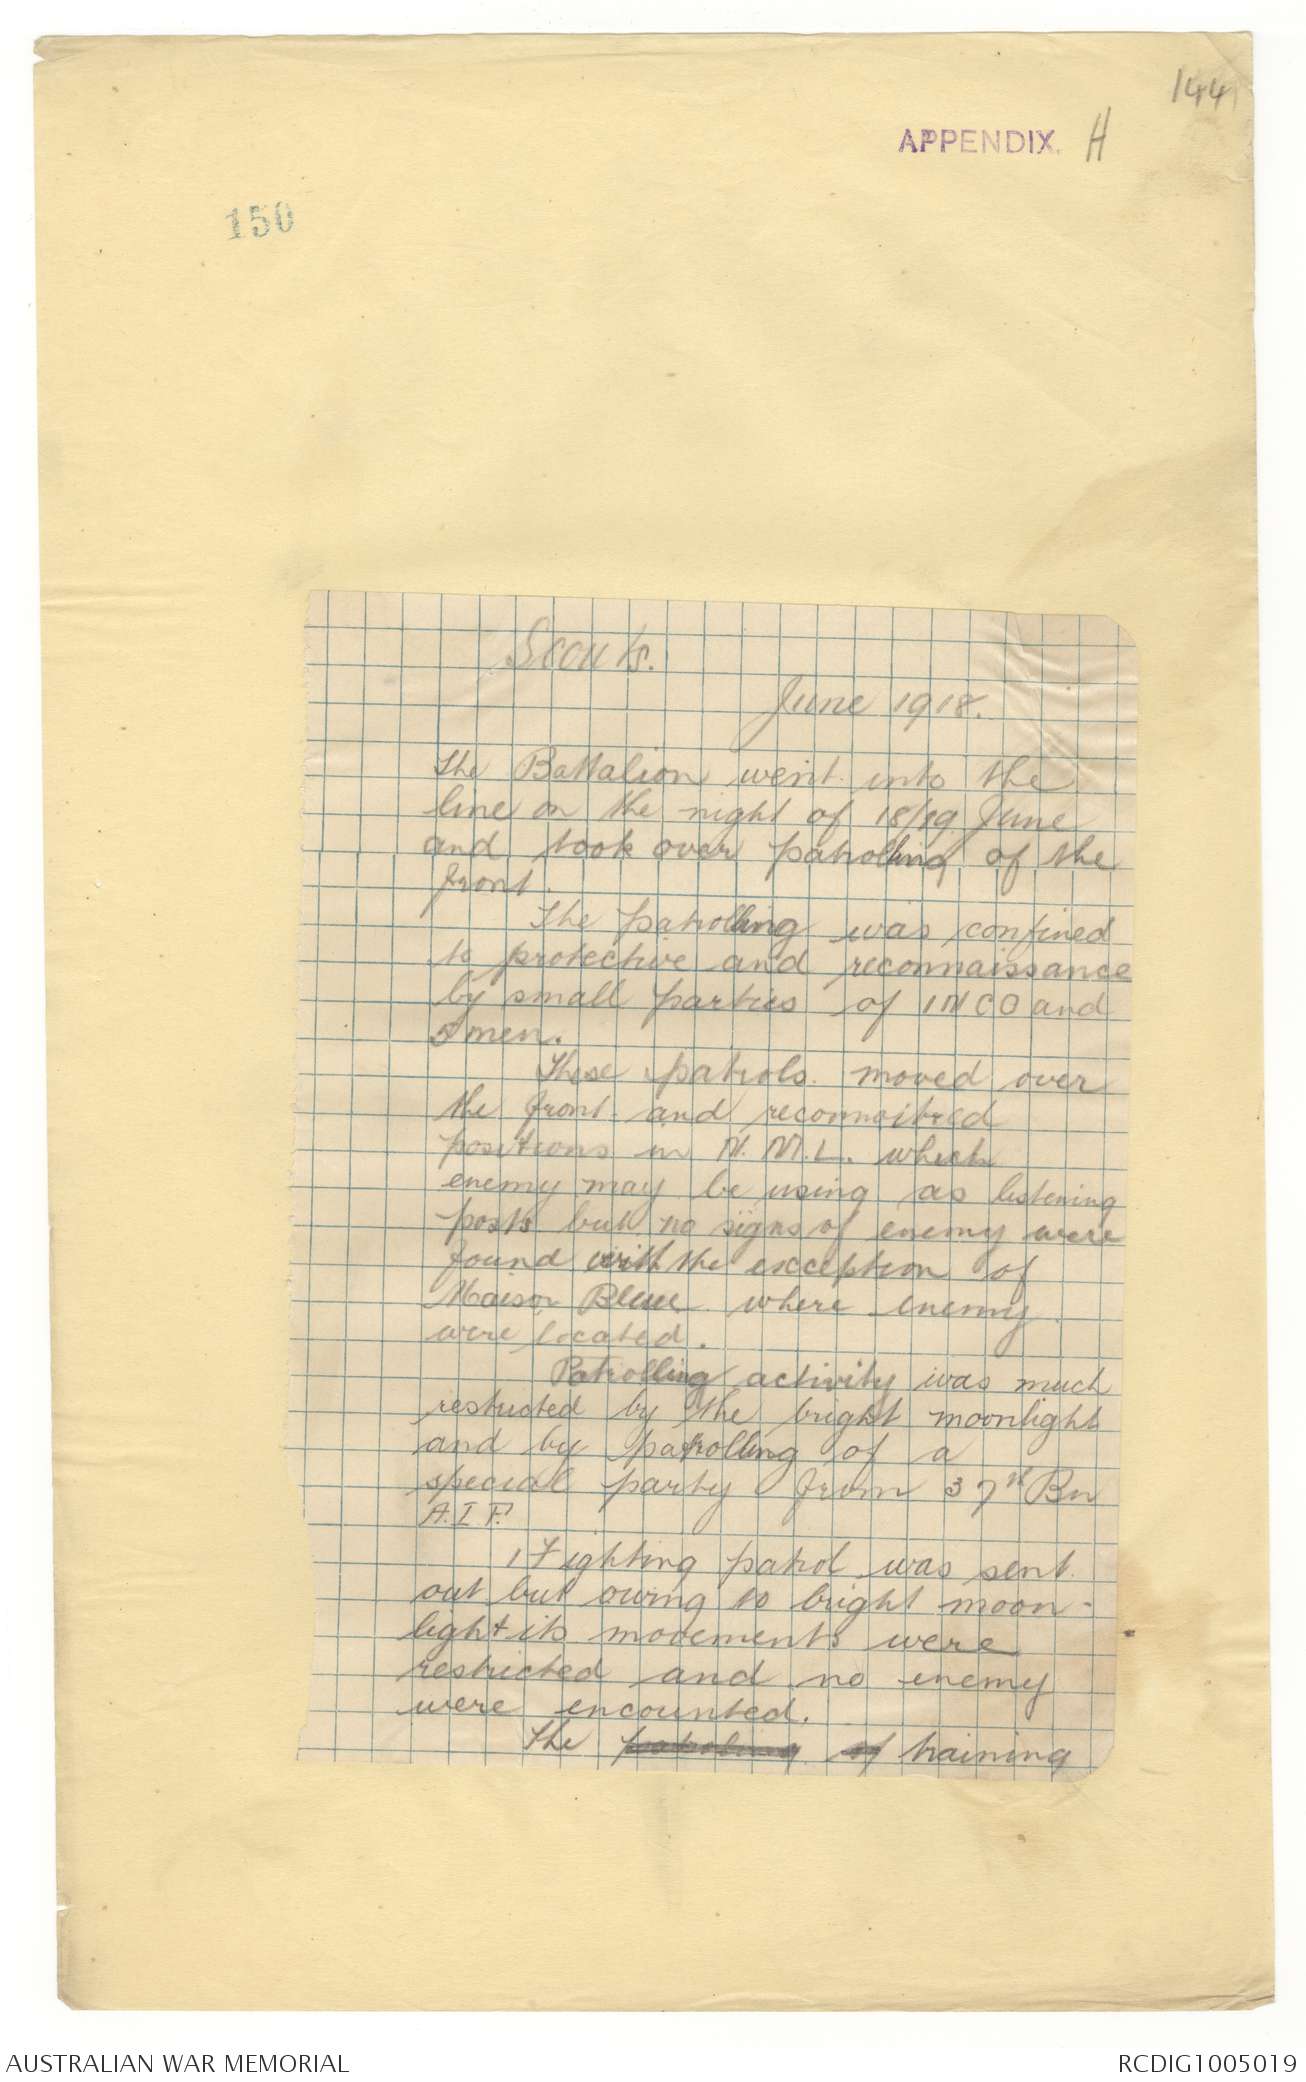 144
APPENDIX. H
150
Scouts.
June 1918.
The Battalion went into the
line on the night of 18/19 June
and took over patrolling of the
front.
The patrolling was confined
to protective and reconnaissance
by small parties of 1 NCO and
5 men.
These patrols moved over
the front and reconnoitred
positions in N. M. L. which
enemy may be using as listening
posts but no signs of enemy were
found with the exception of
Maison Bleue where enemy
were located.
Patrolling activity was much
restricted by the bright moonlight
and by patrolling of a
special party from 37th Bn
A.I.F.
1 Fighting patrol was sent
out but owing to bright moon-
light its movements were
restricted and no enemy
were encounted.
The patroling of training
AUSTRALIAN WAR MEMORIAL
RCDIG1005019